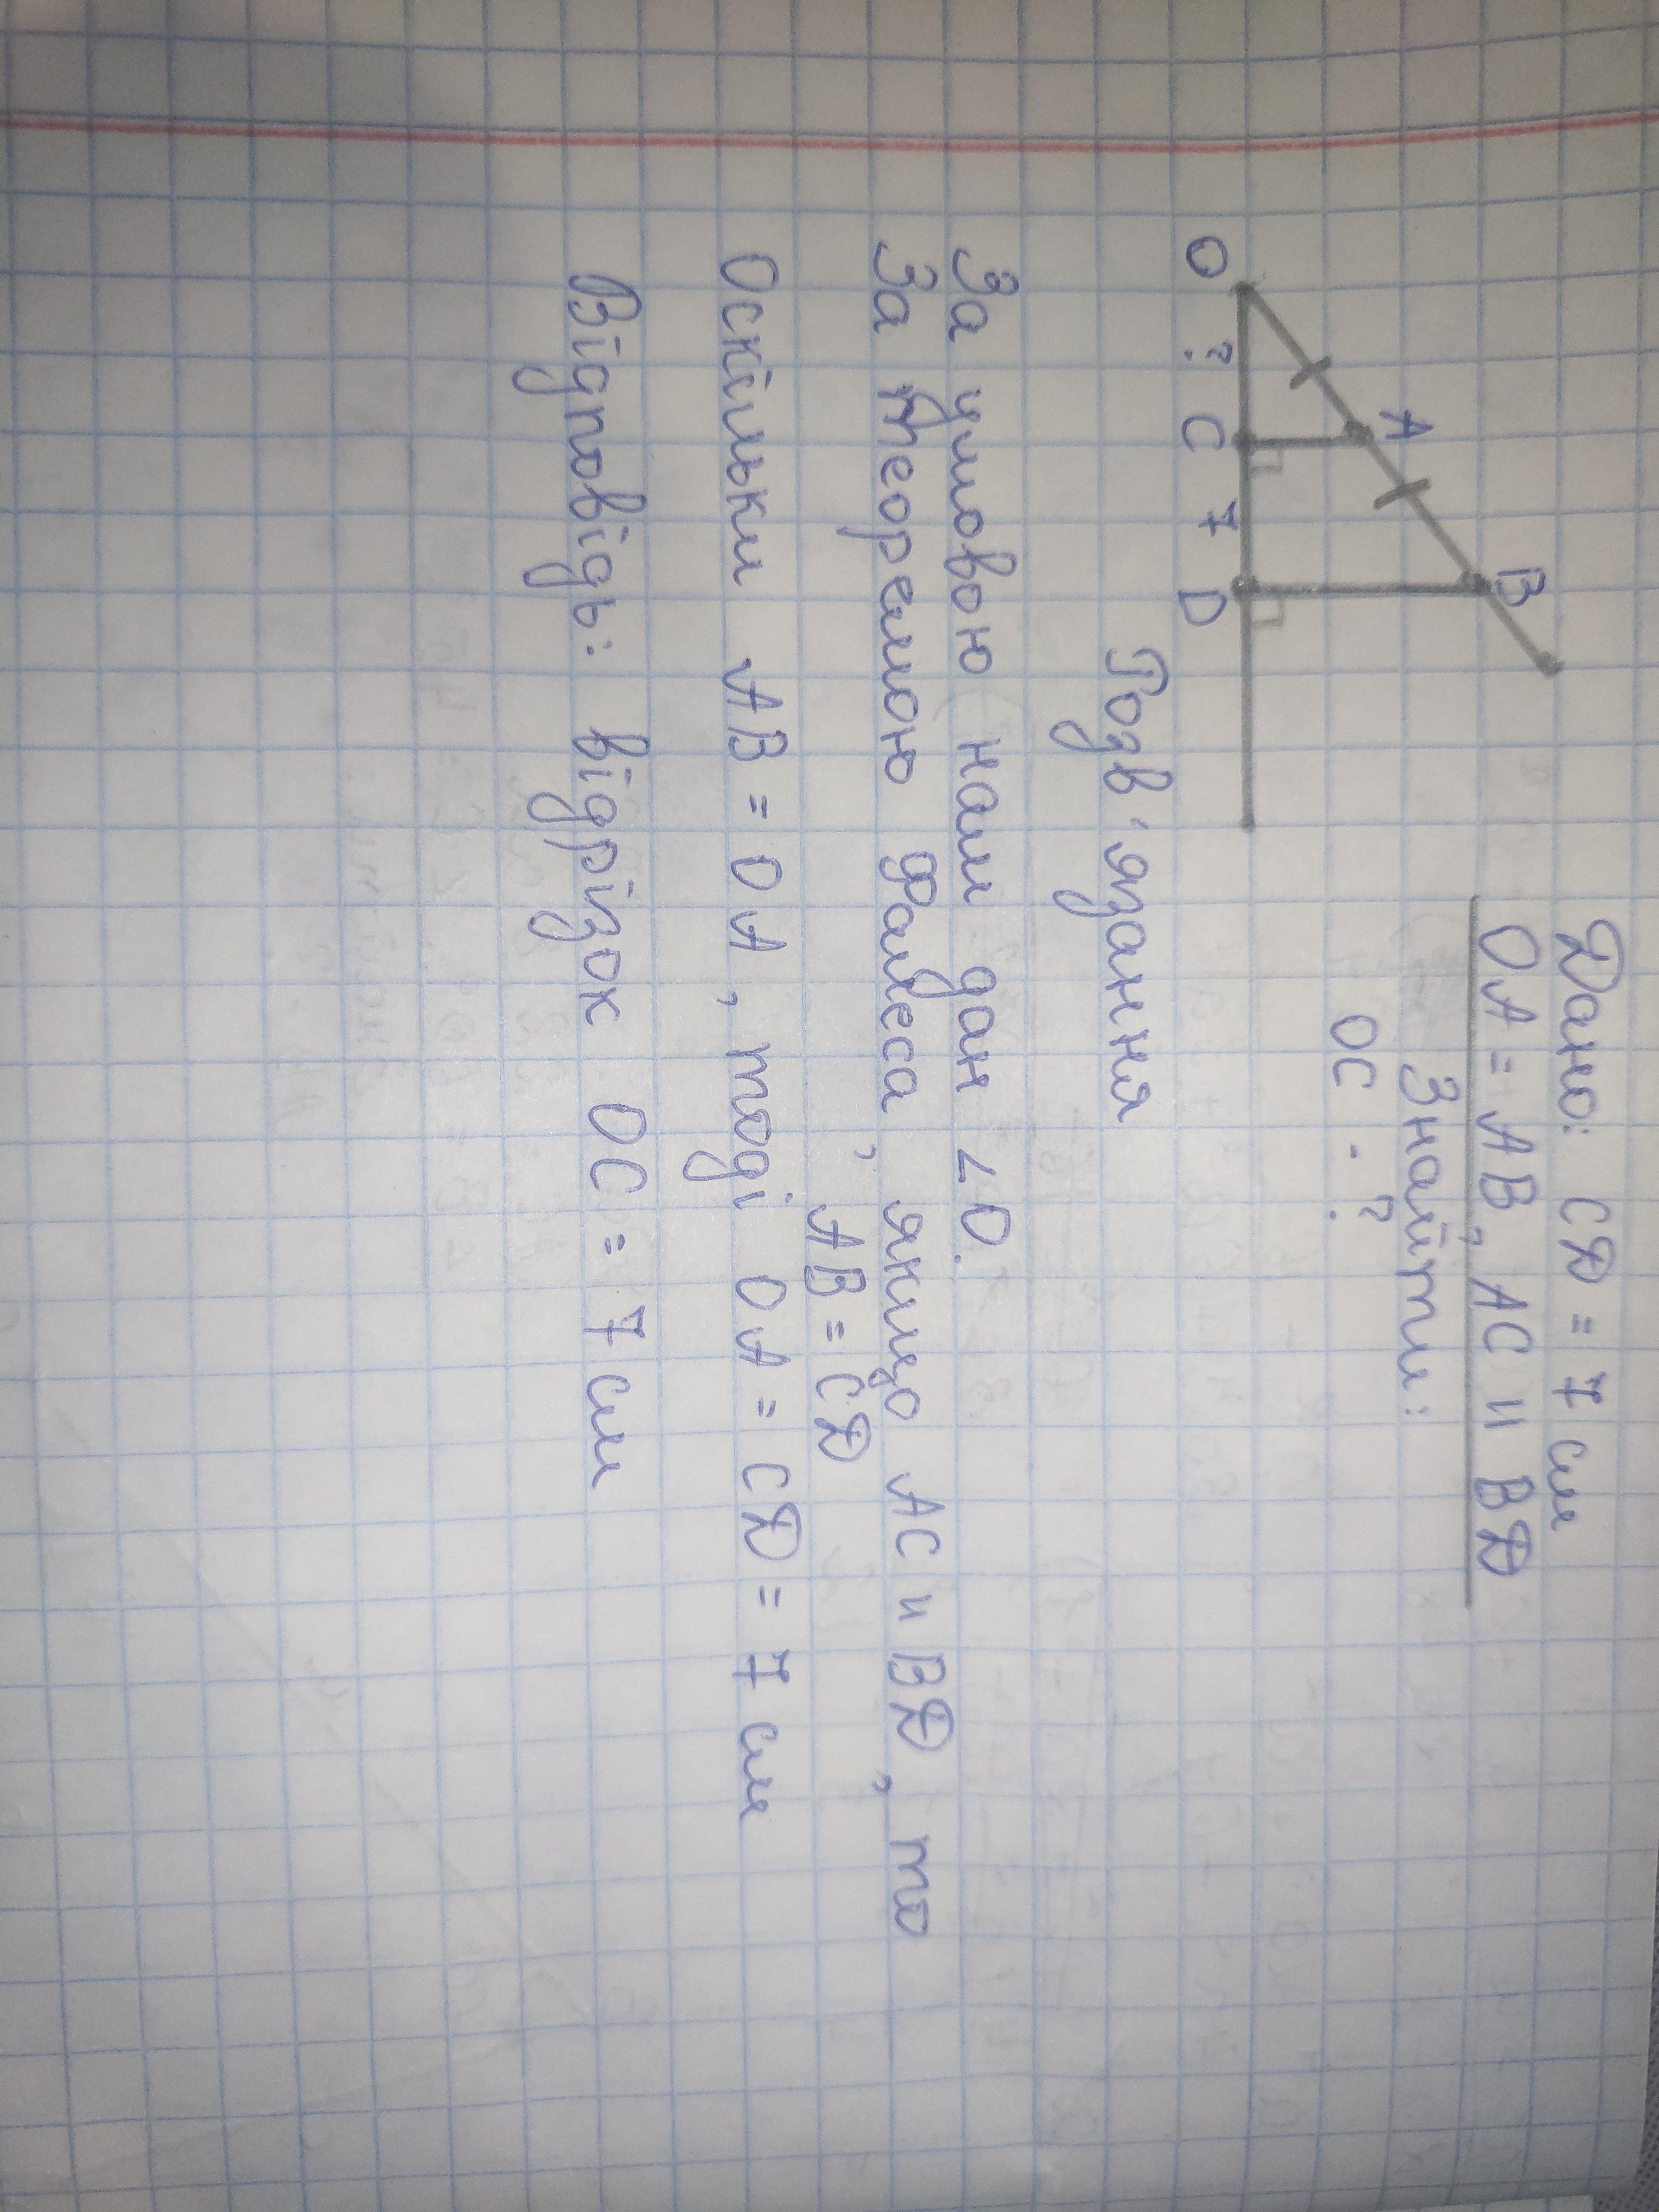 Дано: CD = 7 см
OA = AB, AC || BD
Знайти:
OC - ?
O ? C 7 D A B
Розв'язання
За умовою нам дан ∠O.
За теоремою Фалеса, якщо AC || BD, то
, AB = CD
Оскільки AB = OA, тоді OA = CD = 7 см
Відповідь: відрізок OC = 7 см